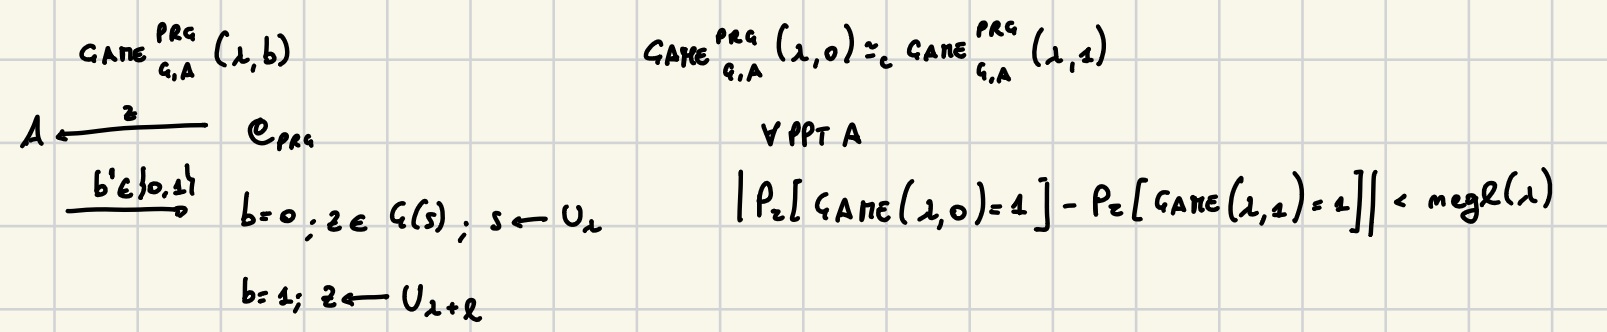 GAME^{PRG}_{G,A} (λ,b)
A ←z— C_{PRG}
b'∈{0,1} →
b=0; z ∈ G(s); s ← U_λ
b=1; z ← U_{λ+l}
GAME^{PRG}_{G,A} (λ,0) ≈_c GAME^{PRG}_{G,A} (λ,1)
∀ PPT A
|Pr[GAME(λ,0)=1] - Pr[GAME(λ,1)=1]| < negl(λ)